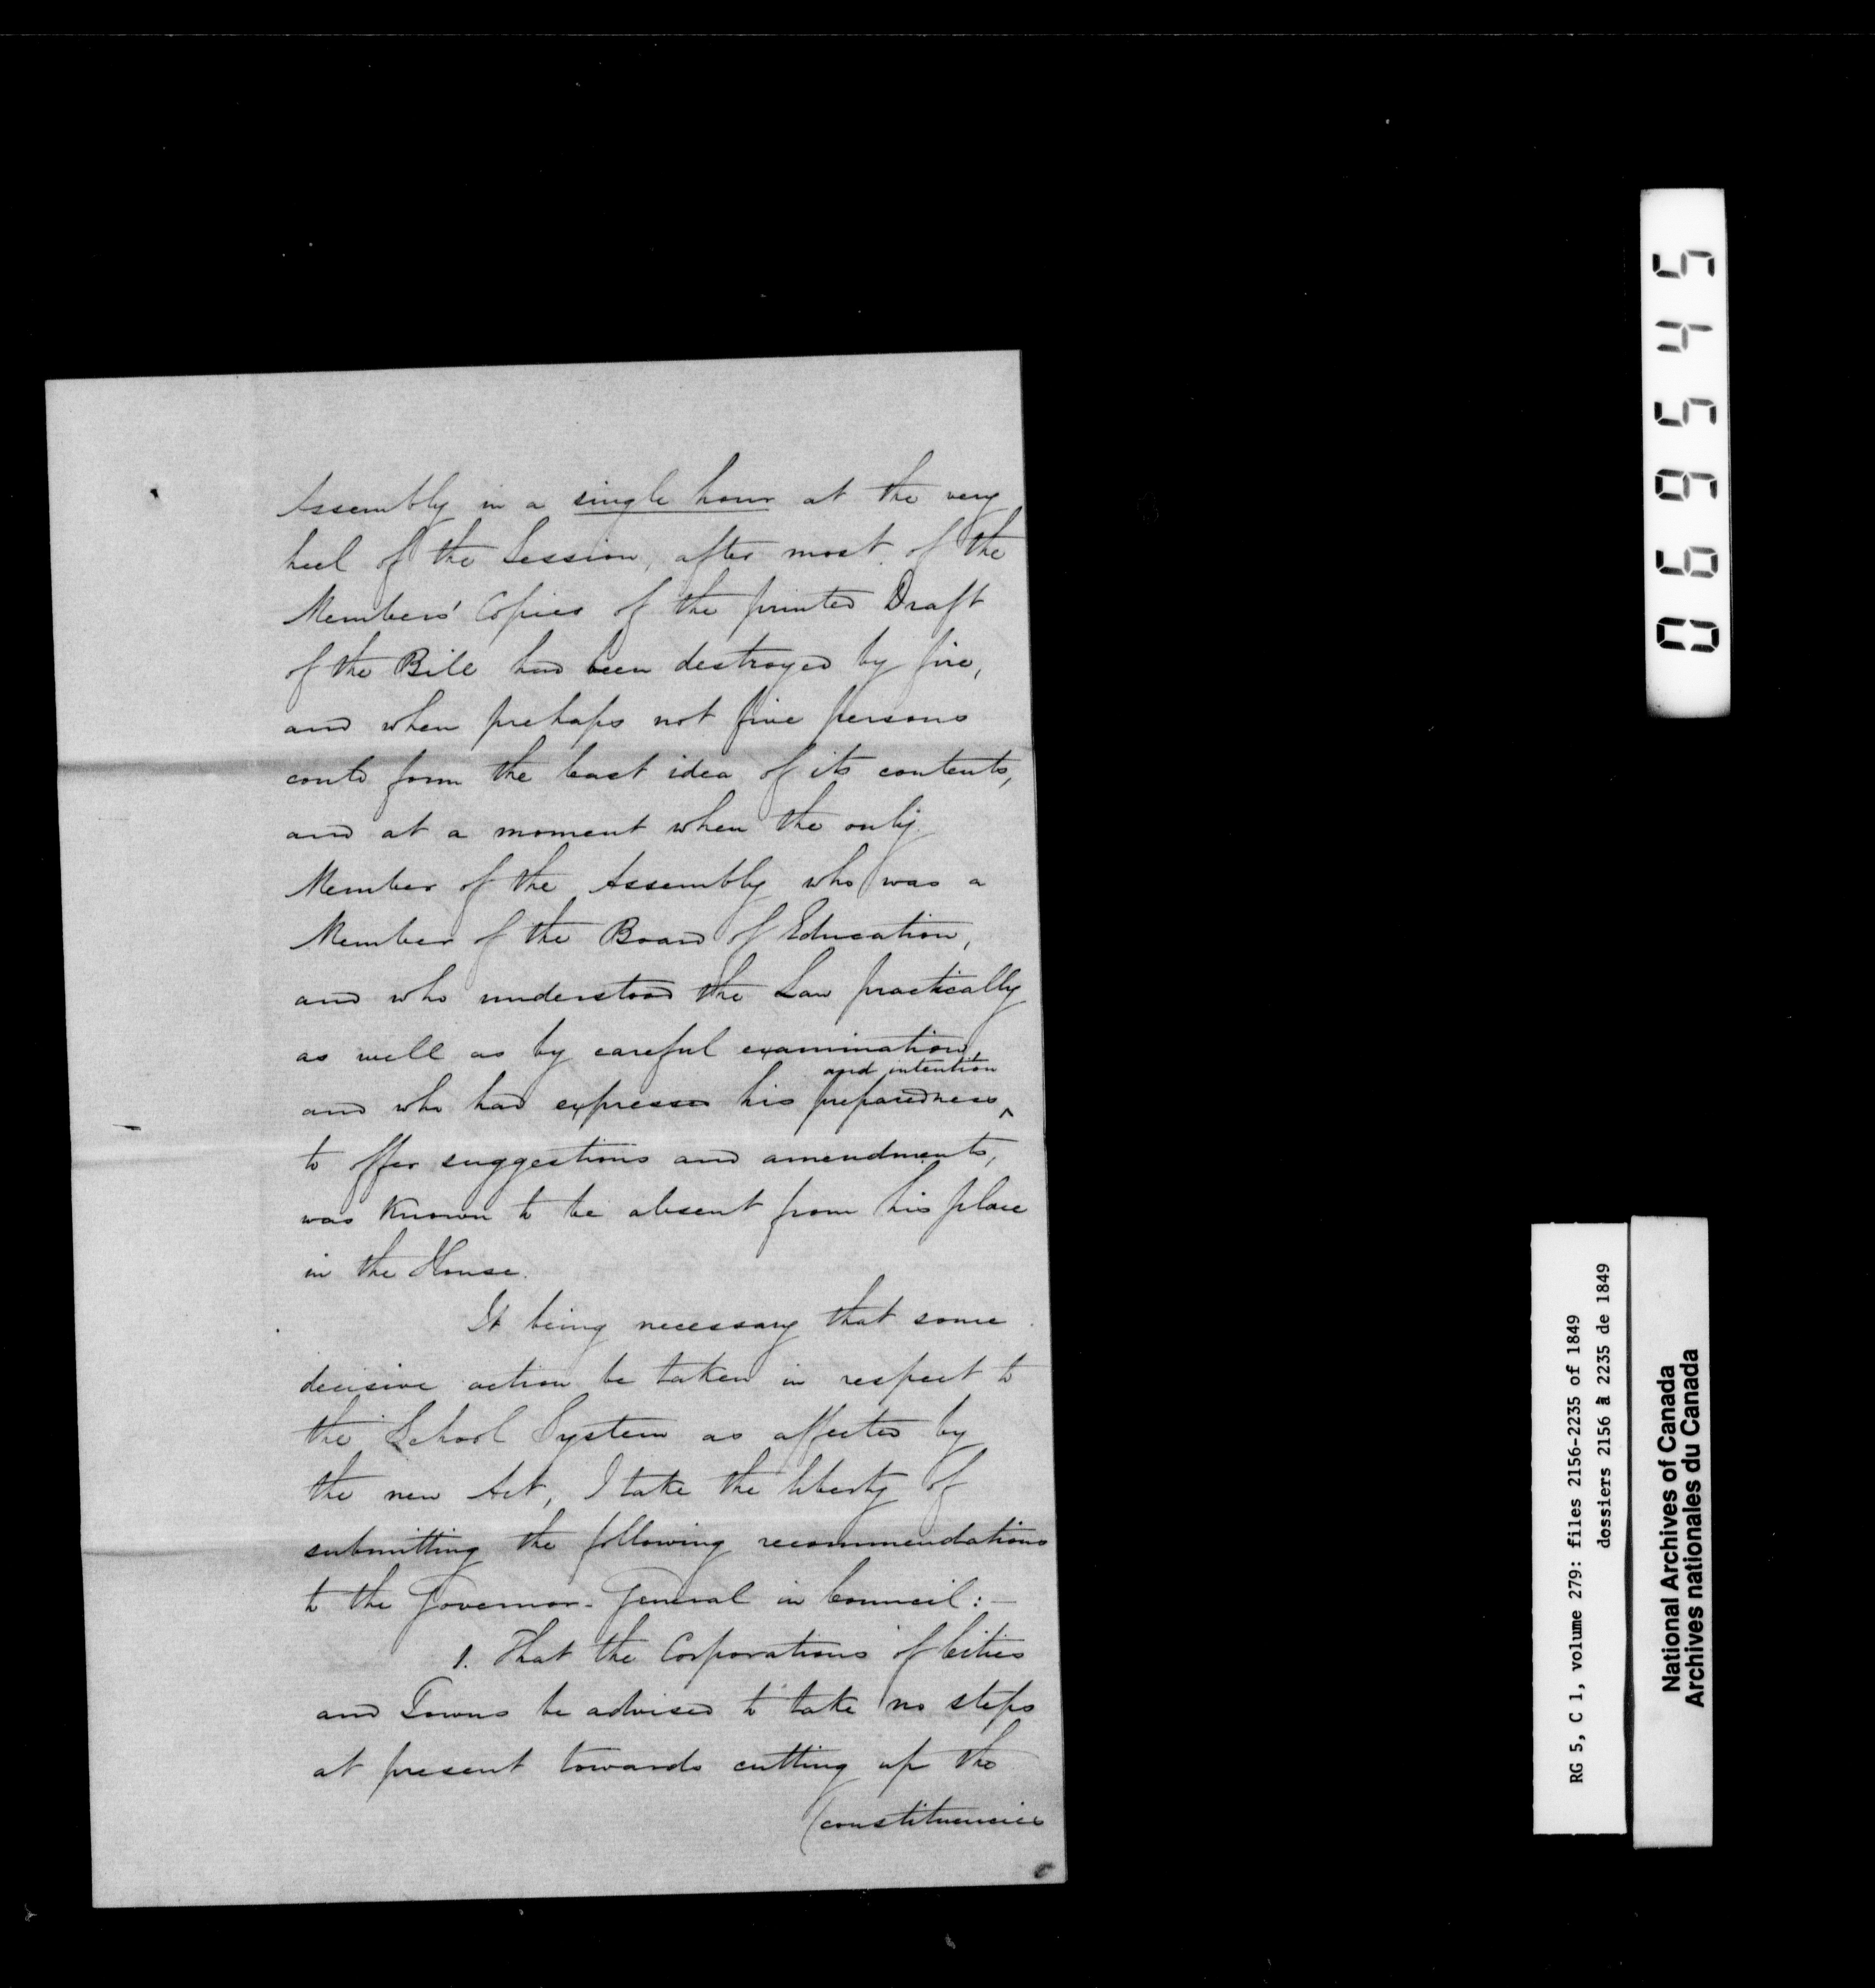 Assembly in a single hour at the very
heel of the Session, after most of the
Members' Copies of the printed Draft
of the Bill had been destroyed by fire,
and when prehaps not five persons
could form the least idea of its contents,
and at a moment when the only
Member of the Assembly who was a
Member of the Board of Education,
and who understood the Law practically
as well as by careful examination,
and intention
and who had expressed his preparedness ^
to offer suggestions and amendments,
was Known to be absent from his place
in the House.
It being necessary that some
decisive action be taken in respect to
the School System as affected by
the new Act, I take the liberty of
submitting the following recommendations
to the Governor-General in Council:—
1. That the Corporations of Cities
and Towns be advised to take no steps
at present towards cutting up the
(constituencies
069545
RG 5, C 1, volume 279: files 2156-2235 of 1849
dossiers 2156 à 2235 de 1849
National Archives of Canada
Archives nationales du Canada